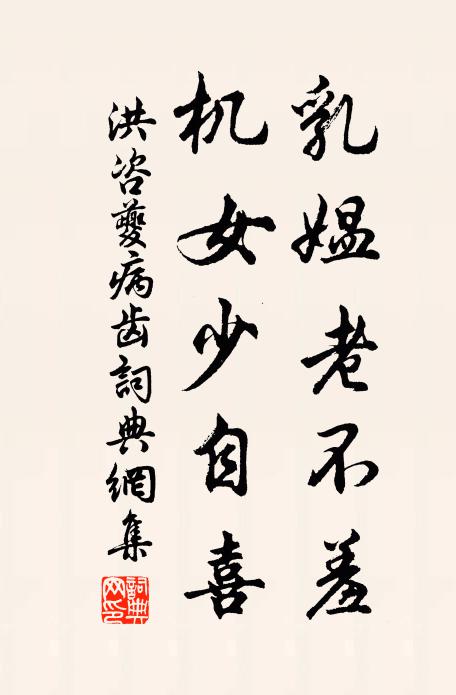 乳媪老不羞
机女少自喜
洪咨夔病齿詞典網集
詞典网印